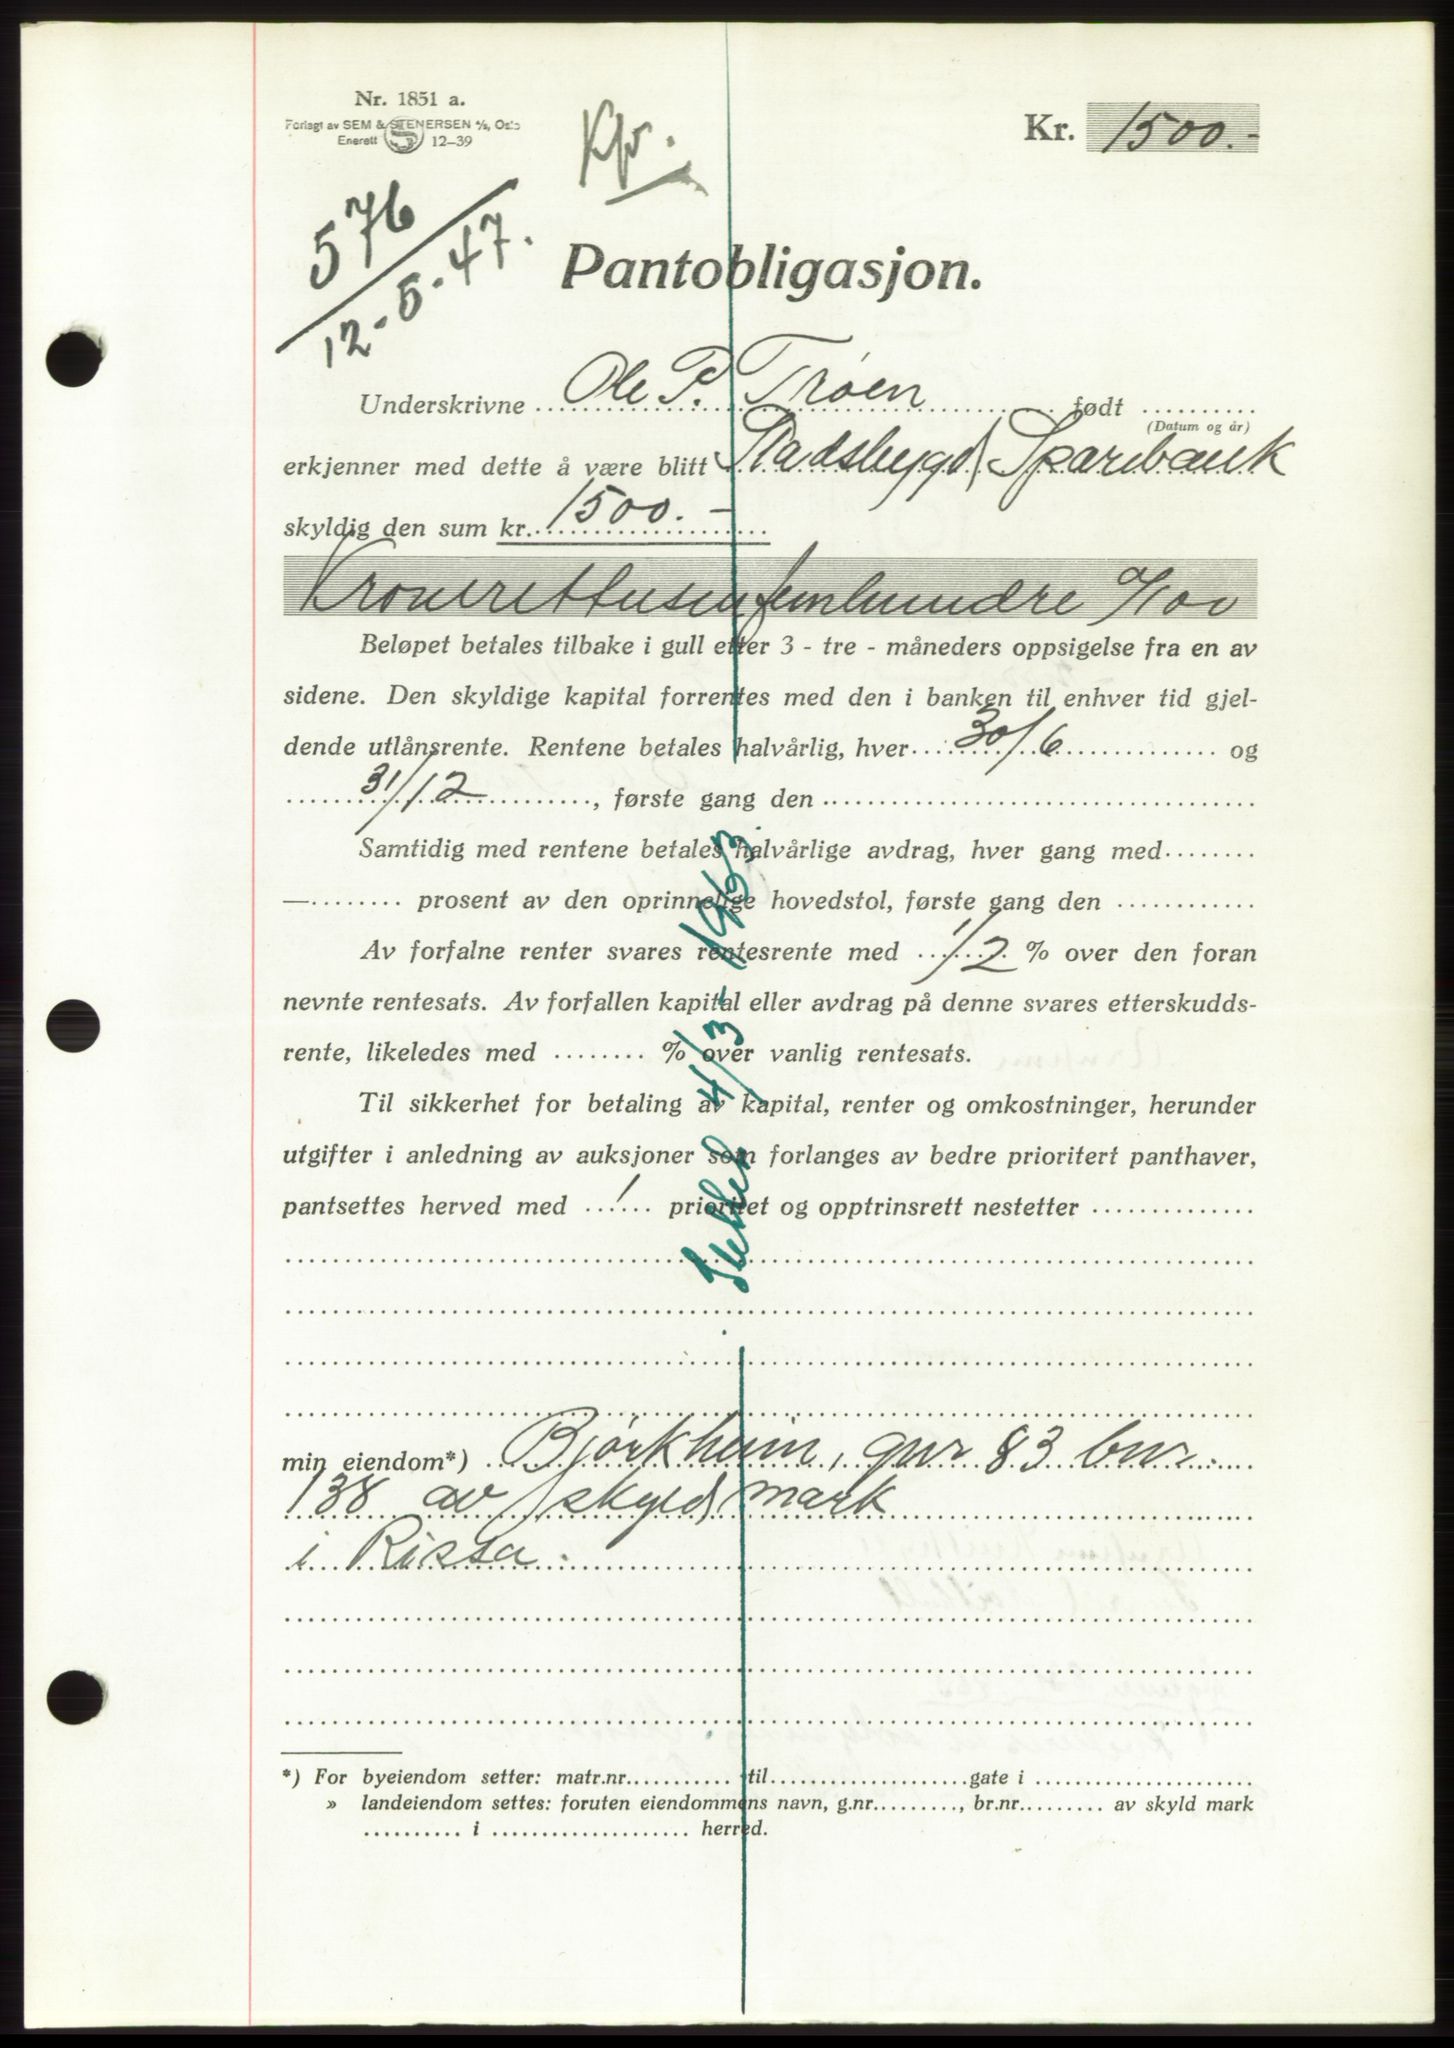 Nr. 1851 a.
Forlagt av SEM & STENERSEN A/S, Oslo
Enerett S 12-39
Kfr.
Kr. 1500.-
576
12-5-47.
Pantobligasjon.
Underskrivne Ole P. Trøen født
(Datum og år)
erkjenner med dette å være blitt Stadsbygd Sparebank
skyldig den sum kr. 1500.-
Kroneréttusenfemhundre 0/100
Beløpet betales tilbake i gull etter 3 - tre - måneders oppsigelse fra en av
sidene. Den skyldige kapital forrentes med den i banken til enhver tid gjel-
dende utlånsrente. Rentene betales halvårlig, hver 30/6 og
31/12, første gang den
Samtidig med rentene betales halvårlige avdrag, hver gang med
— prosent av den oprinnelige hovedstol, første gang den
Av forfalne renter svares rentesrente med 1/2 % over den foran
nevnte rentesats. Av forfallen kapital eller avdrag på denne svares etterskudds-
rente, likeledes med % over vanlig rentesats.
Til sikkerhet for betaling av kapital, renter og omkostninger, herunder
utgifter i anledning av auksjoner som forlanges av bedre prioritert panthaver,
pantsettes herved med 1 prioritet og opptrinsrett nestetter
4/3-1953.
min eiendom*) Bjørkheim, gnr 83 bnr.
138 av skyld mark
i Rissa.
*) For byeiendom setter: matr.nr. til gate i
» landeiendom settes: foruten eiendommens navn, g.nr., br.nr. av skyld mark
i herred.